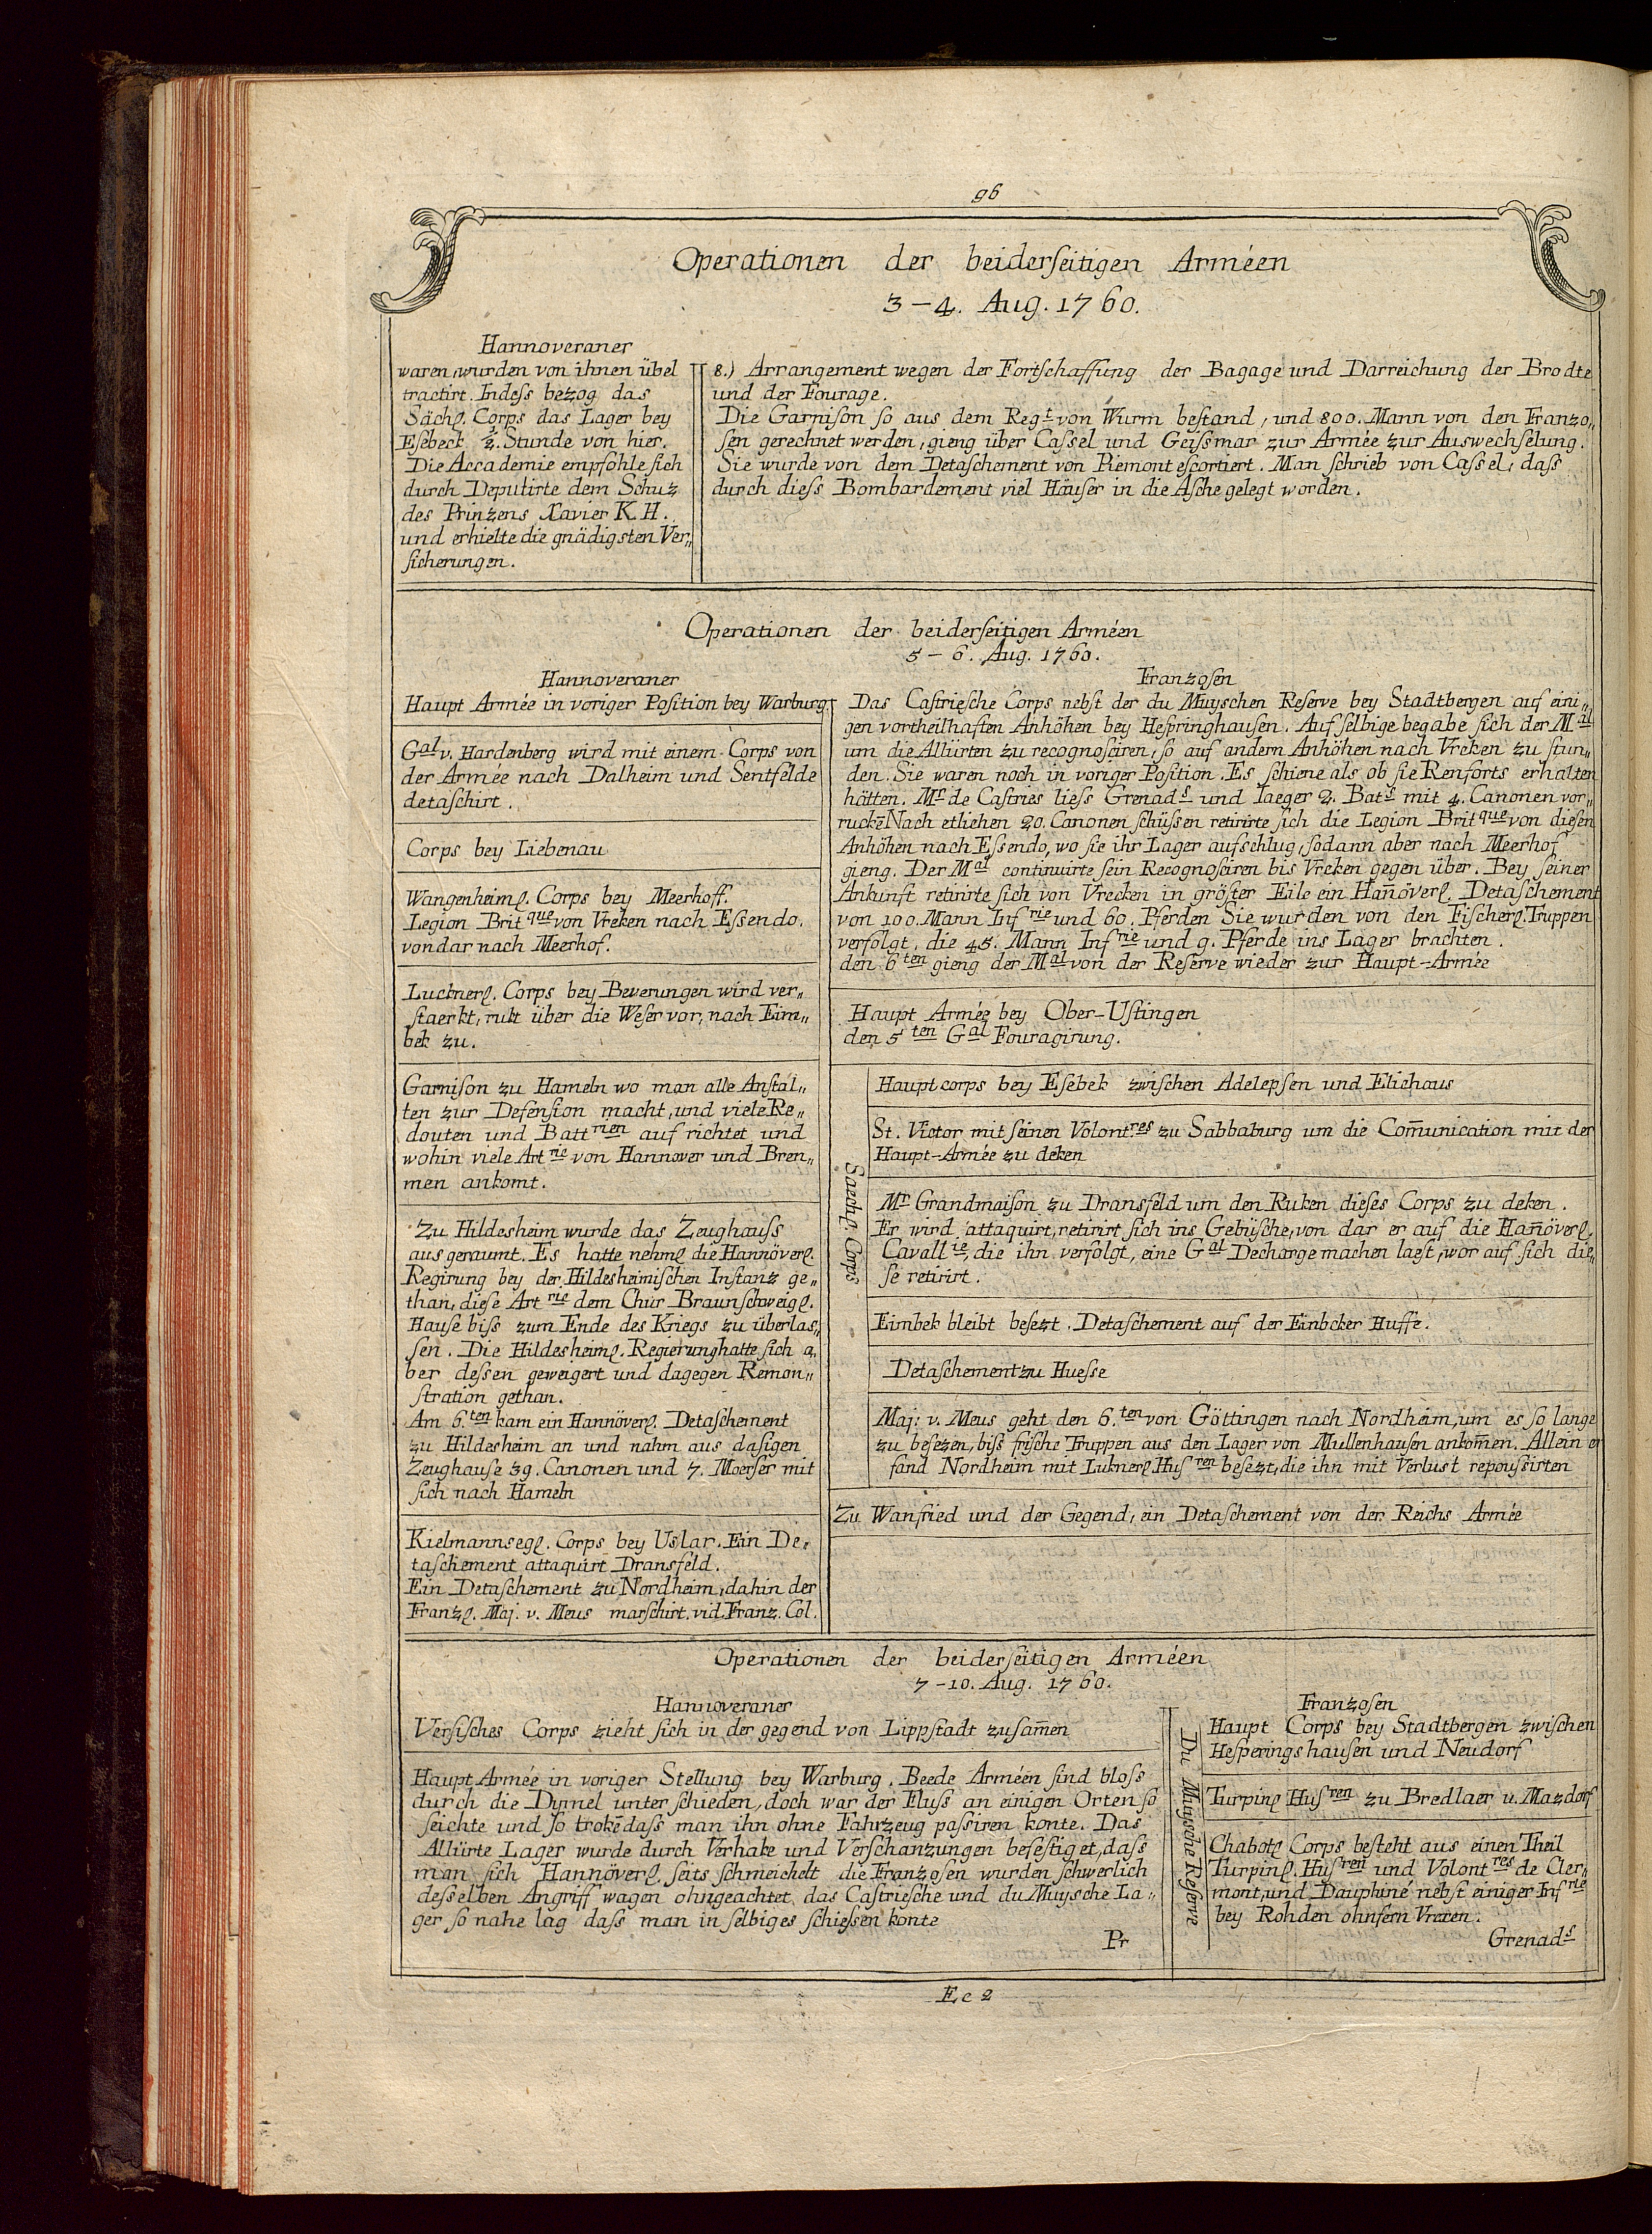 96
Operationen der beiderſeitigen Arméen
3 – 4. Aug. 1760.
Hannoveraner
waren, wurden von ihnen übel
tractirt. Indeſs bezog das
Sächſ. Corps das Lager bey
Eſebeck ½. Stunde von hier.
Die Accademie empfohle ſich
durch Deputirte dem Schuz
des Prinzens Xavier K. H.
und erhielte die gnädigsten Ver„
ſicherungen.
8.) Arrangement wegen der Fortſchaffung der Bagage und Darreichung der Brodte
und der Fourage.
Die Garniſon ſo aus dem Regt von Wurm beſtand, und 800. Mann von den Franzo„
ſen gerechnet werden, gieng über Caſsel und Geiſsmar zur Armée zur Auswechſelung.
Sie wurde von dem Detaſchement von Piemont eſcortiert. Man ſchrieb von Caſsel, daſs
durch dieſs Bombardement viel Häuſer in die Aſche gelegt worden.
Operationen der beiderſeitigen Arméen
5 – 6. Aug. 1760.
Hannoveraner
Haupt Armée in voriger Poſition bey Warburg.
Gal v. Hardenberg wird mit einem Corps von
der Armée nach Dalheim und Sentfelde
detaſchirt.
Corps bey Liebenau
Wangenheimſ. Corps bey Meerhoff.
Legion Britque von Vreken nach Eſsendo.
von dar nach Meerhof.
Lucknerſ. Corps bey Beverungen wird ver„
ſtaerkt, rukt über die Weſer vor, nach Eim„
bek zu.
Garniſon zu Hameln wo man alle Anſtal„
ten zur Defenſion macht, und viele Re„
douten und Battrien auf richtet und
wohin viele Artrie von Hannover und Bren„
men ankomt.
Zu Hildesheim wurde das Zeughauſs
ausgeraumt. Es hatte nehmſ die Hannöverſ.
Regirung bey der Hildesheimiſchen Inſtanz ge„
than, dieſe Artrie dem Chur Braunſchweigſ.
Hauſe biſs zum Ende des Kriegs zu überlaſ„
ſen. Die Hildesheimſ. Regierung hatte ſich a„
ber deſsen geweigert und dagegen Remon„
ſtration gethan.
Am 6.ten kam ein Hannöverſ. Detaſchement
zu Hildesheim an und nahm aus daſigen
Zeughauſe 39. Canonen und 7. Moerſer mit
ſich nach Hameln
Kielmannsegſ. Corps bey Uslar. Ein De„
taſchement attaquirt Dransfeld.
Ein Detaſchement zu Nordheim, dahin der
Franzſ. Maj. v. Meus marſchirt. vid. Franz. Col.
Franzoſen
Das Caſtrieſche Corps nebſt der du Muyschen Reſerve bey Stadtbergen auf eini„
gen vortheilhaften Anhöhen bey Heſpringhauſen. Auf ſelbige begabe ſich der Mal
um die Alliirten zu recognoſciren, ſo auf andern Anhöhen nach Vreken zu ſtun„
den. Sie waren noch in voriger Poſition. Es ſchiene als ob ſie Renforts erhalten
hätten. Mr de Caſtries lieſs Grenads und Iaeger 2. Bats mit 4. Canonen vor„
ruckē Nach etlichen 20. Canonen ſchüſsen retirirte ſich die Legion Britque von dieſen
Anhöhen nach Eſsendo, wo ſie ihr Lager aufſchlug, ſodann aber nach Meerhof
gieng. Der Mal continuirte ſein Recognoſciren bis Vreken gegen über. Bey ſeiner
Ankunft retirirte ſich von Vrecken in gröſter Eile ein Han̄överſ. Detaſchement
von 100. Mann Infrie und 60. Pferden Sie wurden von den Fiſcherſ. Truppen
verfolgt, die 45. Mann Infrie und 9. Pferde ins Lager brachten.
den 6ten gieng der Mal von der Reſerve wieder zur Haupt-Armée
Haupt Armée bey Ober-Uſtingen
den 5ten Gal Fouragirung.
Saechſ. Corps
Hauptcorps bey Eſebek zwiſchen Adelepſen und Elichaus
St. Victor mit ſeinen Volontres zu Sabbaburg um die Com̄unication mit der
Haupt-Armée zu deken
Mr Grandmaiſon zu Dransfeld um den Ruken dieſes Corps zu deken.
Er wird attaquirt, retirirt ſich ins Gebüſche, von dar er auf die Han̄överſ.
Cavallie, die ihn verfolgt, eine Gal Decharge machen laeſt, wor auf ſich die„
ſe retirirt.
Eimbek bleibt beſezt. Detaſchement auf der Einbcker Huffe.
Detaſchement zu Hueſse
Maj: v. Meus geht den 6.ten von Göttingen nach Nordheim, um es ſo lange
zu beſezen, biſs friſche Truppen aus den Lager von Mullenhauſen ankom̄en. Allein er
fand Nordheim mit Luknerſ Huſren beſezt, die ihn mit Verluſt repouſsirten
Zu Wanfried und der Gegend, ein Detaſchement von der Reichs Armée
Operationen der beiderſeitigen Arméen
7 – 10. Aug. 1760.
Hannoveraner
Verſiſches Corps zieht ſich in der gegend von Lippſtadt zuſam̄en
Haupt Armée in voriger Stellung bey Warburg. Beede Arméen ſind bloſs
durch die Dymel unter ſchieden, doch war der Fluſs an einigen Orten ſo
ſeichte und ſo trokē daſs man ihn ohne Fahrzeug paſsiren konte. Das
Alliirte Lager wurde durch Verhake und Verſchanzungen befeſtiget, daſs
man ſich Hannöverſ. ſeits ſchmeichelt die Franzoſen wurden ſchwerlich
deſselben Angriff wagen ohngeachtet das Caſtrieſche und du Muysche La„
ger ſo nahe lag daſs man in ſelbiges ſchieſsen konte
Pr
Franzoſen
Du Muysche Reſerve
Haupt Corps bey Stadtbergen zwiſchen
Heſperingshauſen und Neudorf
Turpinſ Huſren zu Bredlaer u. Mazdorf
Chabotſ Corps beſteht aus einen Theil
Turpinſ. Huſren und Volontres de Cler„
mont, und Dauphiné nebſt einiger Infrie
bey Rohden ohnfern Vrexen.
Grenads
Ee 2